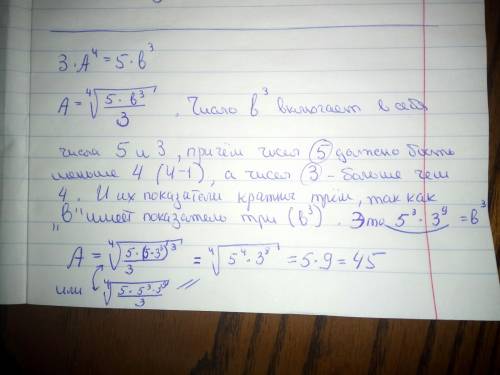 3·A⁴ = 5·b³
A = ⁴√(5·b³/3) . Число b³ включает в себя
числа 5 и 3, причём чисел 5 должно быть
меньше 4 (4-1), а чисел 3 - больше чем
4. И их показатели кратны трём, так как
"b" имеет показатель три (b³). Это 5³·3⁹ = b³
A = ⁴√(5·(5·3³)³/3) = ⁴√(5⁴·3⁸) = 5·9 = 45
или ⁴√(5·5³·3⁹/3)